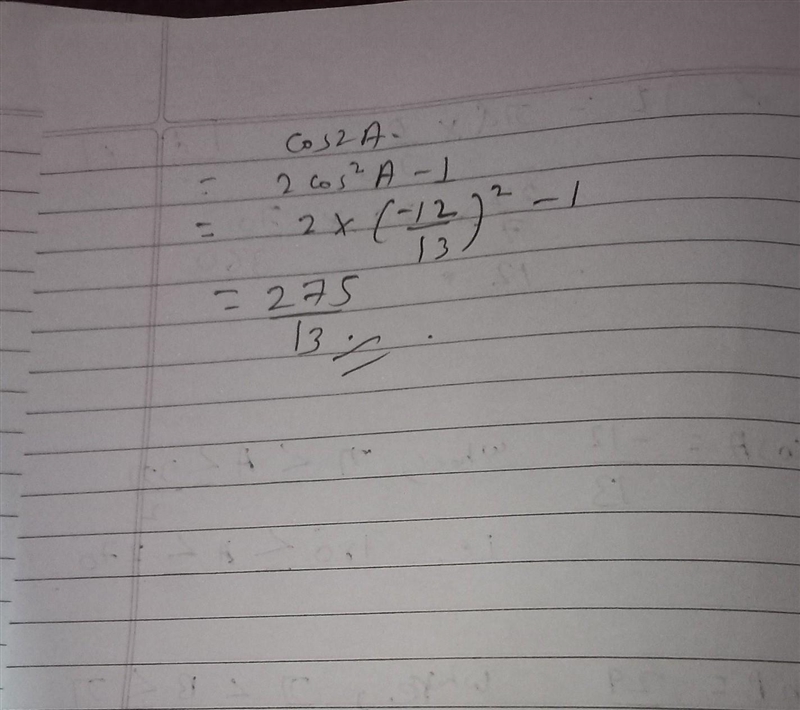 cos2A.
= 2 cos² A - 1
= 2 × (-12/13)² - 1
= 275/13